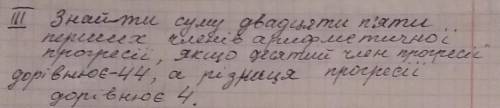 III Знайти суму двадцяти п'яти
перших членів арифметичної
прогресії, якщо десятий член прогресії
дорівнює -44, а різниця прогресії
дорівнює 4.